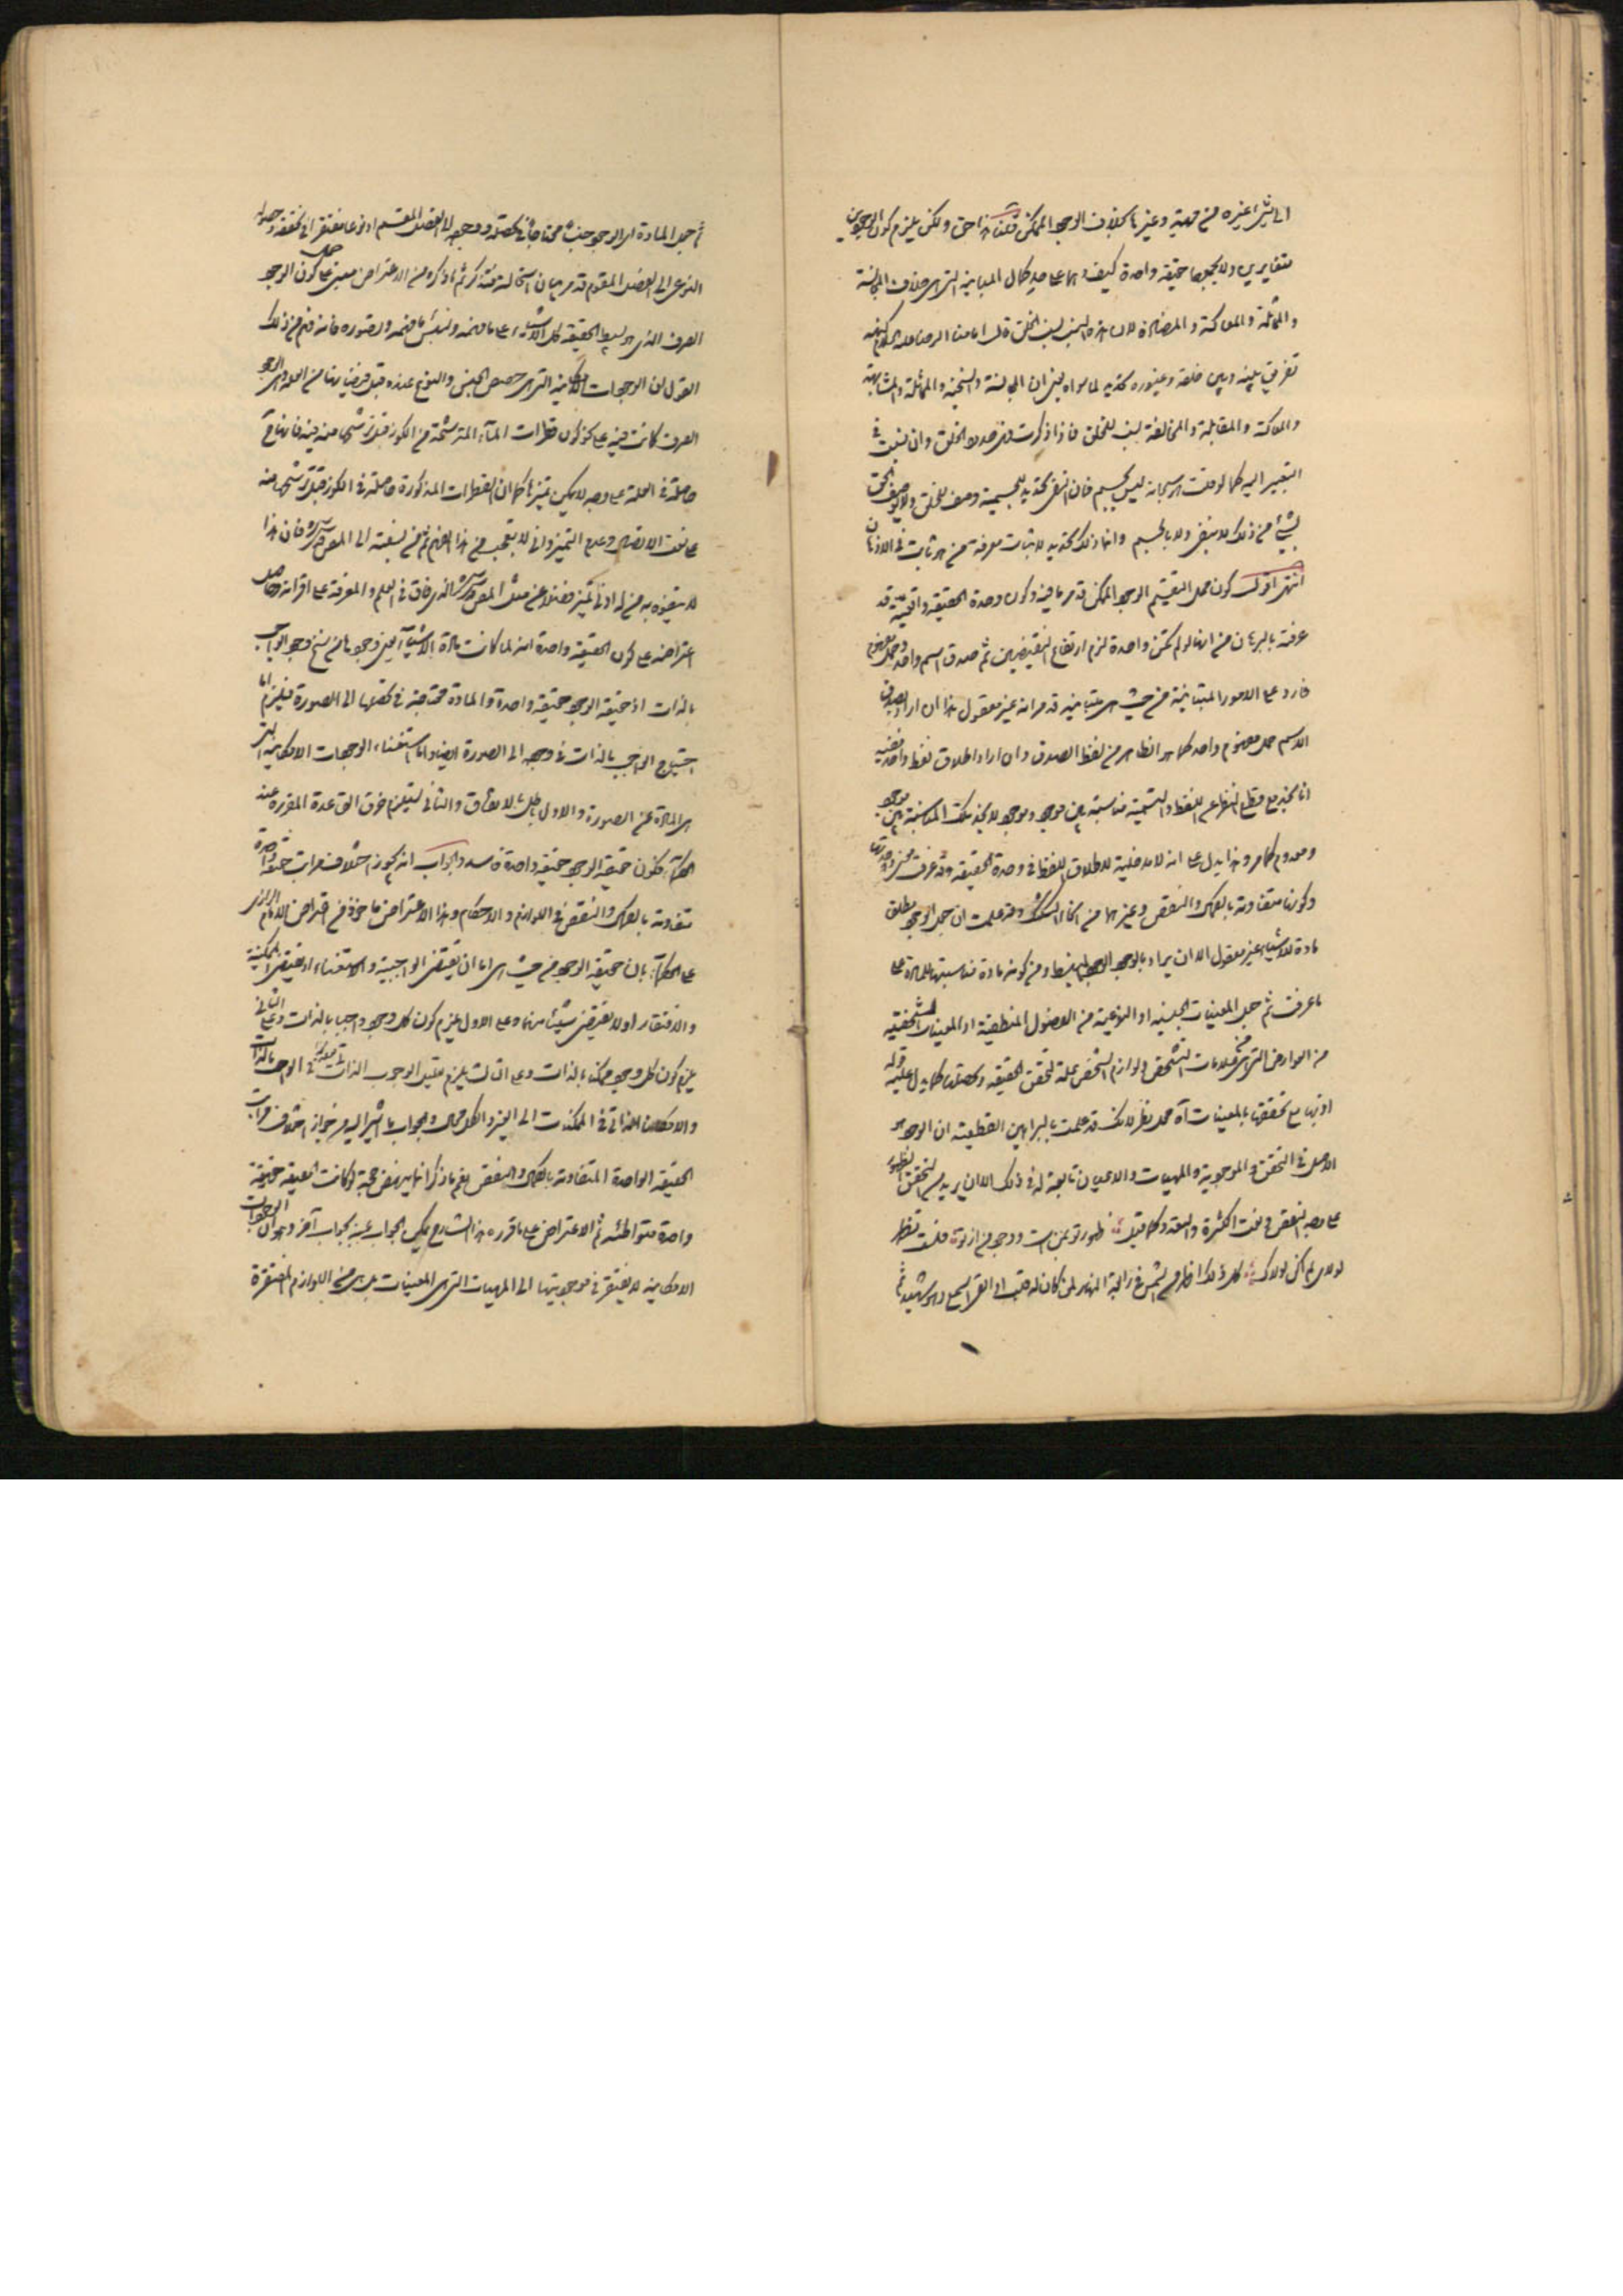 الى شيئ غيره من مهية وغيرها بخلاف الوجود الممكن قلت هذا حق ولكن يلزم كون الوجودين
متغايرين ولا يجمعهما حقيقة واحدة كيف وهما على حد كمال المباينة التى هى خلاف المجانسة
والمماثلة والمعاكسة و لان هذه النسب نسب الخلق قال امامنا الرضا عليه السلام كنهه
تفريق بينه وبين خلقه وغيوره تحديد لما سواه ان المجانسة والمماثلة والمشابهة
والمعاكسة والمقابلة والمخالفة نسب للخلق فاذا ذكرت فهى حدود الخلق وان نسبت فى
التعبير اليه كما لو قلت انه سبحانه ليس بجسم فان النفى تحديد للجسمية وصف للخلق ولا يوصف الحق
بشيئ من ذلك لا بنفى ولا بالجسم وانما ذلك تحديد لاثبات معرفة من هو ثابت فى الاذهان
انتهى اقول كون محل التقسيم الوجود الممكن قد مر ما فيه وكون وحدة الحقيقة واقعية قد
عرفته بالبرهان من انها لو لم تكن واحدة لزم ارتفاع النقيضين ثم صدق اسم واحد وحمل مفهوم
فارد على الامور المتباينة من حيث هى متباينة قد مر انه غير معقول هذا ان اراد بصدق
الاسم حمل مفهوم واحد كما هو الظاهر من لفظ الصدق وان اراد اطلاق لفظ واحد ففيه
انا نجد مع قطع النظر عن اللفظ والتسمية مناسبة بين موجود وموجود لا نجد تلك المناسبة بين موجود
ومعدوم كما مر وهذا يدل على انه لا مدخلية لاطلاق اللفظ فى وحدة الحقيقة وقد عرفت معنى وحدتها
وكونها متفاوتة بالكمال والنقص وغيرهما من انحاء التشكيك وقد علمت ان جعل الوجود مطلق
مادة للاشياء غير معقول الا ان يراد بالوجود الوجود المنبسط ومن كونه مادة مناسبتها للمادة على
ما عرفت ثم جعل المعينات الجنسية او النوعية من الفصول المنطقية او المعينات الشخصية
من العوارض التى هى من علامات التشخص ولوازم الشخص علة لتحقق الحقيقة وتحصلها كما يدل عليه قوله
او نها مع تحققها بالمعينات آه محل نظر لانك قد علمت بالبراهين القطعية ان الوجود هو
الاصل فى التحقق والموجودية والمهيات والاعيان تابعة له فى ذلك الا ان يريد من التحقق الظهور
على وجه النقص فى نعت الكثرة والسعة وكما قيل ظهور تو بمن است و وجود من از تو فلست تظهر
لولاى لم اكن لولاك كل ذلك اظهر من الشمس فى رابعة النهار لمن كان له قلب او القى السمع وهو شهيد ثم
ثم جعل المادة اى الوجود جنسا محتاجا فى تحصله ووجوده الى الفصل المقسم او نوعا مفتقرا فى تحققه وحصوله
النوعى الى الفصل المقوم قد مر بيان استحالته فتذكر ثم ما ذكره من الاعتراض مبنى على كون الوجود
الصرف الذى هو بسيط الحقيقة كل الاشياء على ما فهمه ولبئس ما فهمه وتصوره فانه فهم من ذلك
القول ان الوجودات الامكانية التى هى حصص الجنس والنوع عنده قبل فيضانها من العلة وهى الوجود
الصرف كانت فيه على نحو كون قطرات الماء المترشحة من الكوز قبل ترشحها منه فيه فانها ح
حاصلة فى العلة على وجه لا يمكن تميزها كما ان القطرات المذكورة حاصلة فى الكوز قبل ترشحها منه
على نعت الاتصال وعدم التميز وانى لا تعجب من هذا الفهم ثم من نسبته الى المص قدس سره فان هذا
لا يتفوه به من له ادنى تميز فضلا عن مثل المص قدس سره الذى فاق فى العلم والمعرفة على اقرانه وحاصل
اعتراضه على كون الحقيقة واحدة انه لما كانت مادة الاشياء يعنى وجودها من سنخ وجود الواجب
بالذات اذ حقيقة الوجود حقيقة واحدة والمادة محتاجة فى تحققها الى الصورة فيلزم اما
احتياج الواجب بالذات فى وجوده الى الصورة ايضا واما استغناء الوجودات الامكانية التى
هى المادة عن الصورة والاول باطل بالاتفاق والثانى يستلزم خرق القاعدة المقررة عند
الحكماء فكون حقيقة الوجود حقيقة واحدة فاسد والجواب انه يجوز اختلاف مراتب حقيقة واحدة
متفاوتة بالكمال والنقص فى اللوازم والاحكام وهذا الاعتراض ماخوذ من اعتراض الامام الرازى
على الحكماء بان حقيقة الوجود من حيث هى اما ان تقتضى الواجبية والاستغناء او تقتضى الممكنية
والافتقار او لا تقتضى شيئا منها وعلى الاول يلزم كون كل وجود واجبا بالذات وعلى الثانى
يلزم كون كل وجود ممكنا بالذات وعلى الثالث يلزم تعليل الوجوب الذاتى فى الواجب بالذات
والامكان الذاتى فى الممكنات الى الغير والكل محال والجواب ما اشير اليه من جواز اختلاف مراتب
الحقيقة الواحدة المتفاوتة بالكمال والنقص نعم ما ذكرا انما ينهض حجة لو كانت الحقيقة حقيقة
واحدة متواطئة ثم الاعتراض على ما قرره هذا الشارح يمكن الجواب عنه بجواب آخر وهو ان الوجودات
الامكانية لا تفتقر فى موجوديتها الى المهيات التى هى المعينات بل هى من اللوازم المفتقرة